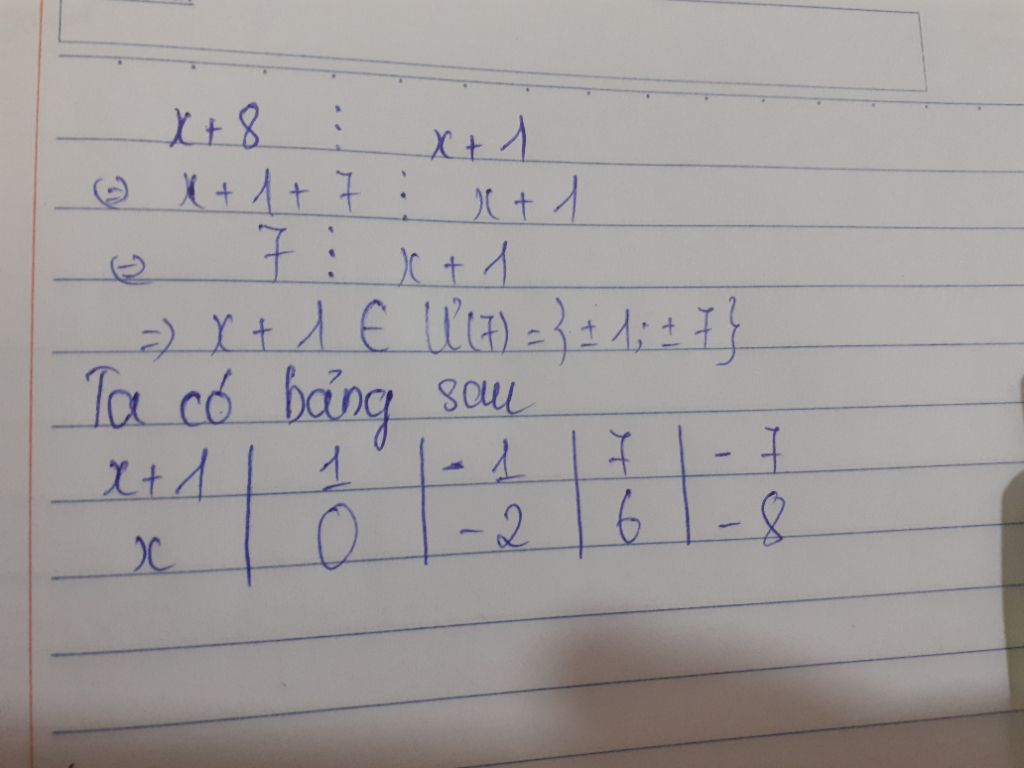 x + 8 ⋮ x + 1
⇔ x + 1 + 7 ⋮ x + 1
⇔ 7 ⋮ x + 1
=> x + 1 ∈ Ư(7) = {± 1; ± 7}
Ta có bảng sau
x+1 | 1 | - 1 | 7 | - 7
x | 0 | - 2 | 6 | - 8